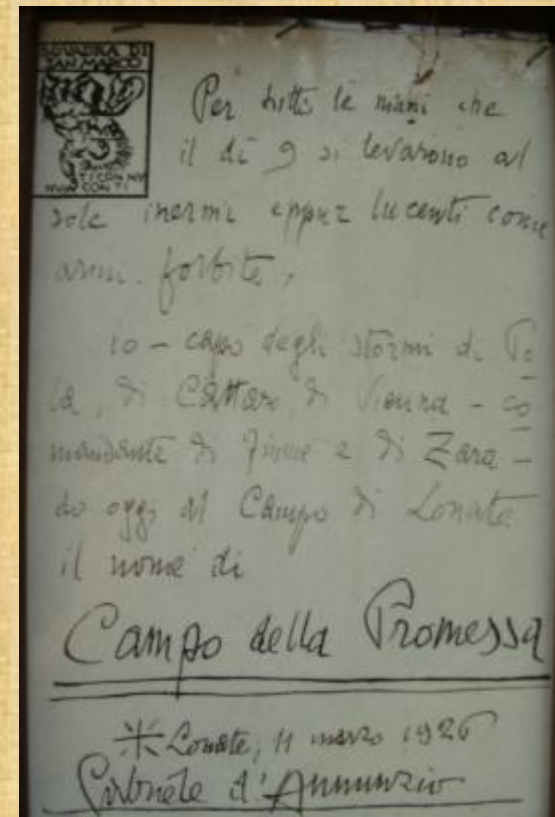 SQUADRA DI
SAN MARCO
TI CON NU
NUI CON TI
Per tutte le mani che
il dì 9 si levarono al
sole inermi eppur lucenti come
armi forbite,
io – capo degli stormi di Po
la, di Cattaro, di Vienna – co
mandante di Fiume e di Zara –
do oggi al Campo di Lonate
il nome di
Campo della Promessa
Lonate, 11 marzo 1926
Gabriele d'Annunzio